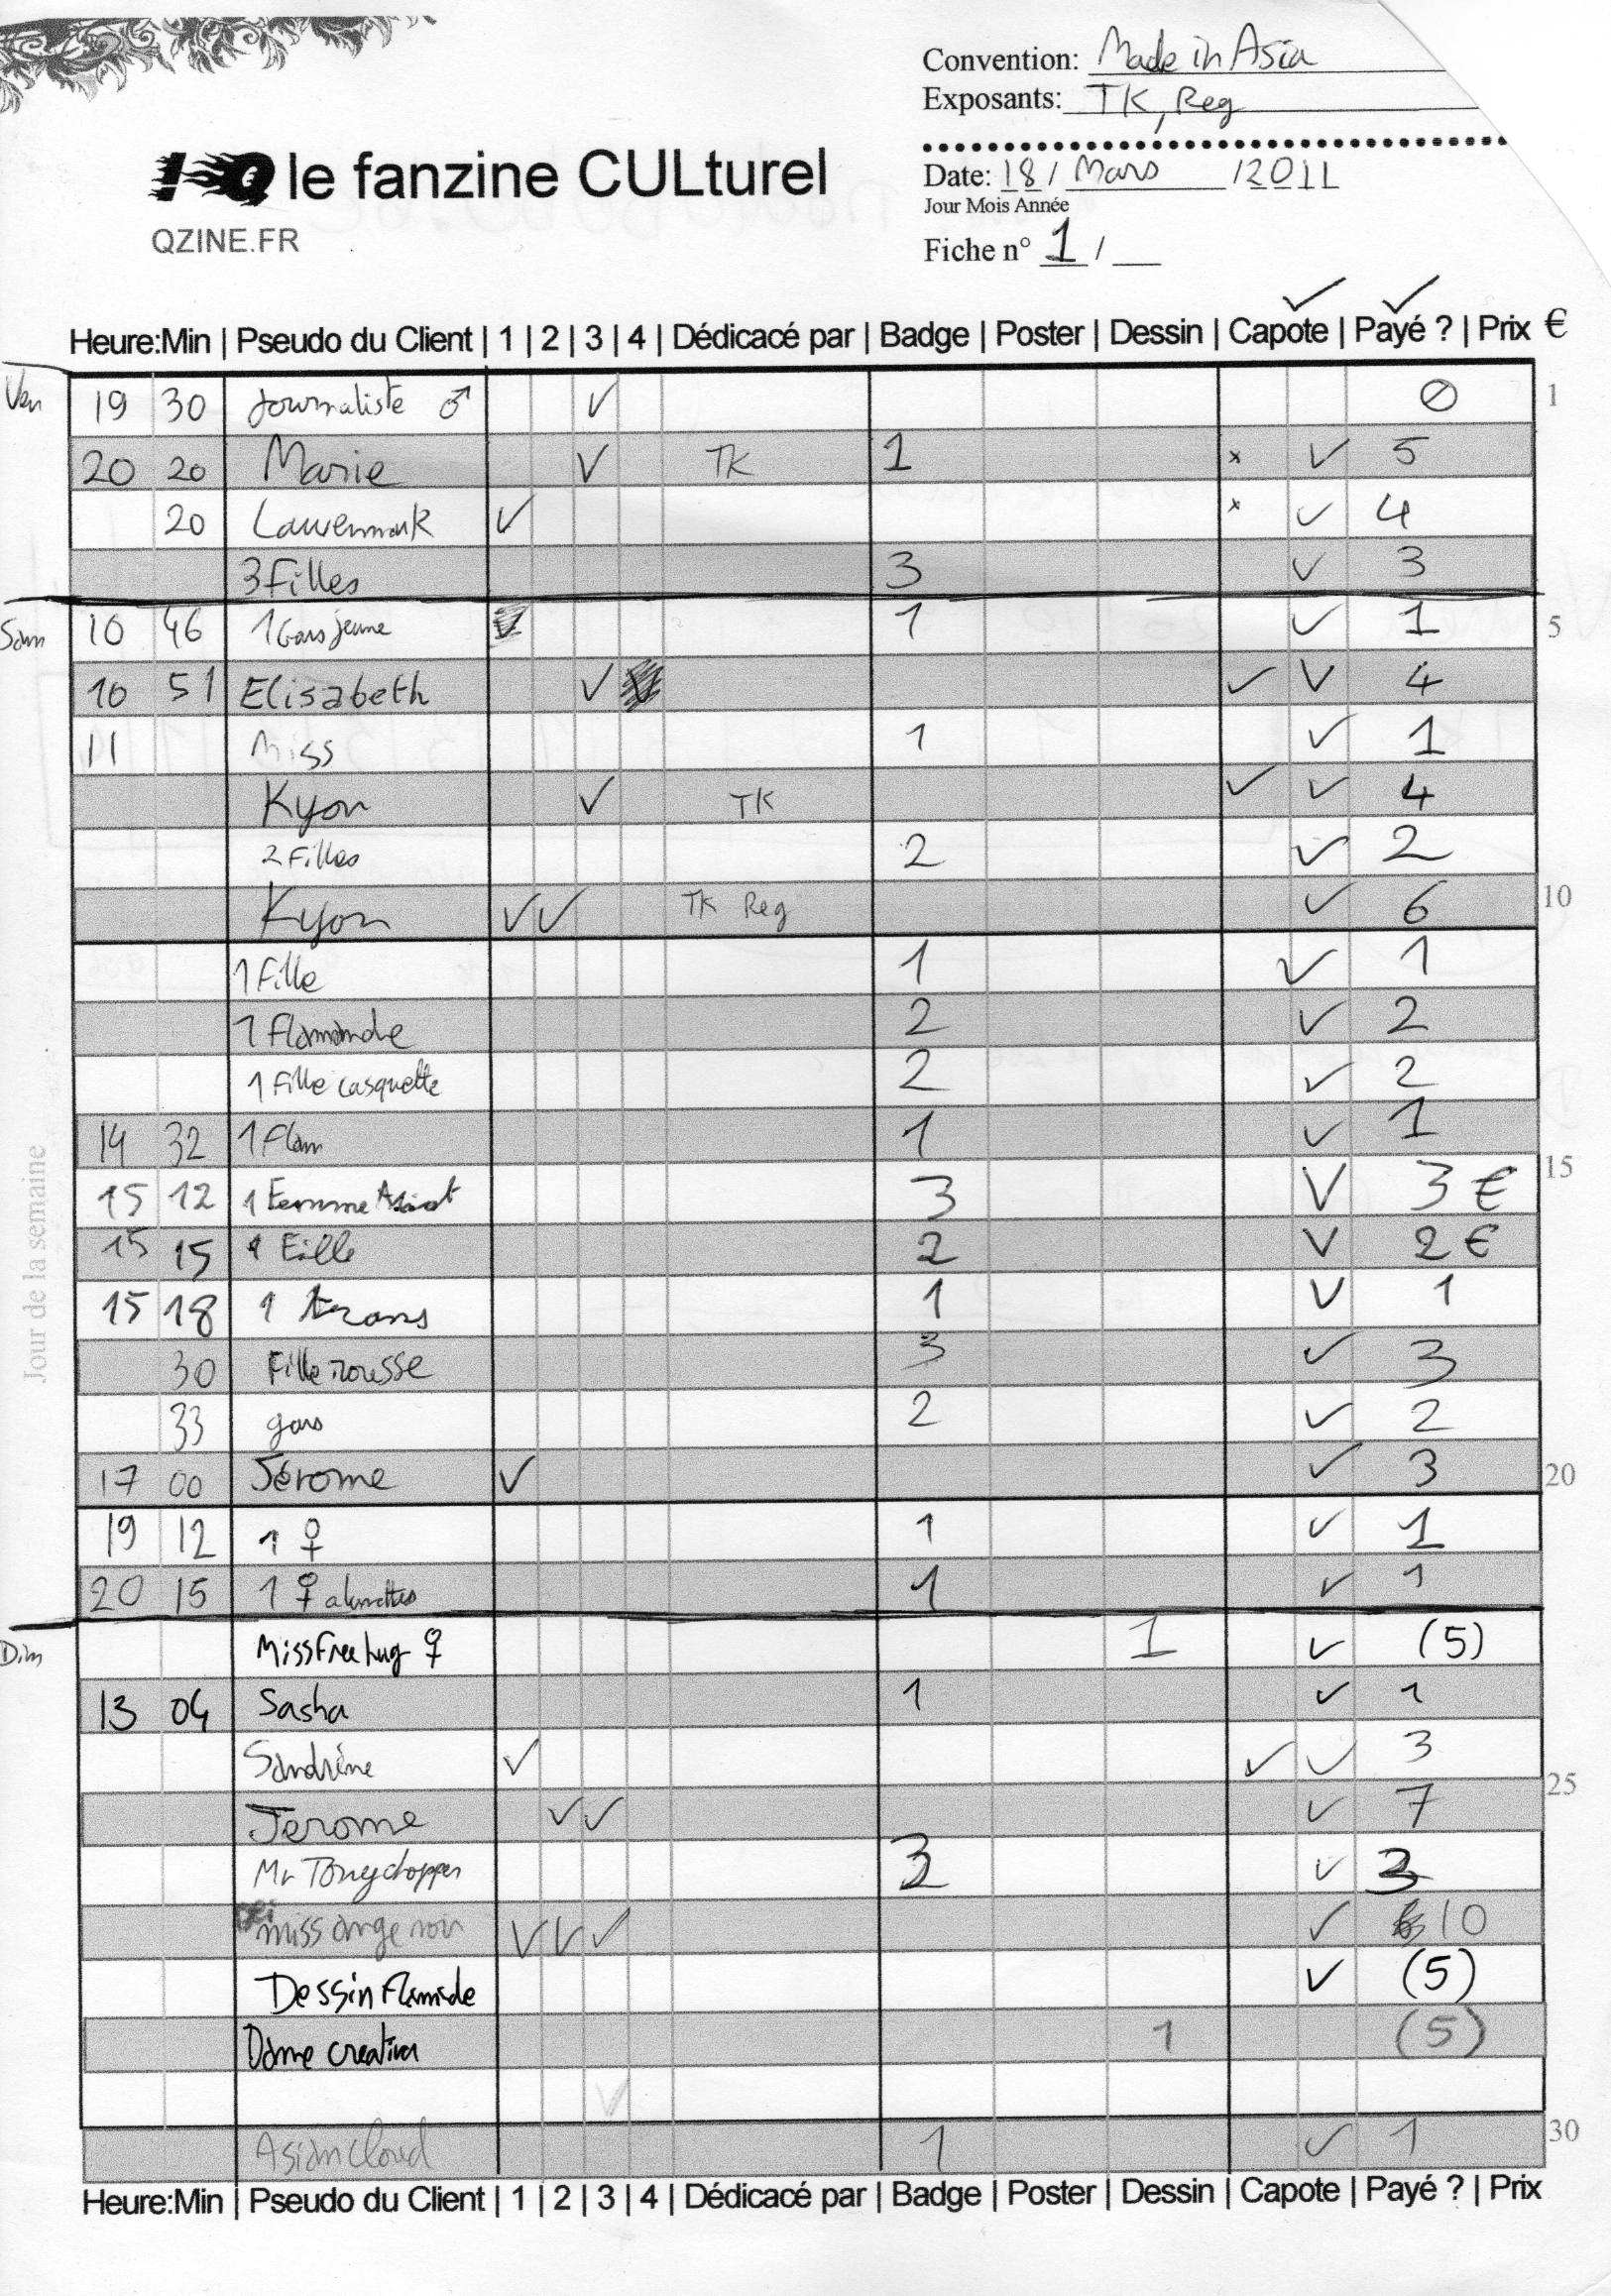 Convention: Made in Asia
Exposants: TK, Reg
IQ le fanzine CULturel
Date: 18 / Mars / 2011
Jour Mois Année
QZINE.FR
Fiche n° 1 / __
✓ ✓
Heure:Min | Pseudo du Client | 1 | 2 | 3 | 4 | Dédicacé par | Badge | Poster | Dessin | Capote | Payé ? | Prix €
Ven 19 30 Journaliste ♂ ✓ ∅ 1
20 20 Marie ✓ TK 1 x ✓ 5
20 ✓ x ✓ 4
3 Filles 3 ✓ 3
Sam 10 46 1 Gars jeune 1 ✓ 1 5
10 51 Elisabeth ✓ ✓ ✓ 4
11 Miss 1 ✓ 1
Kyon ✓ TK ✓ ✓ 4
2 Filles 2 ✓ 2
Kyon ✓ ✓ TK Reg ✓ 6 10
1 Fille 1 ✓ 1
1 Flamande 2 ✓ 2
1 Fille casquette 2 ✓ 2
14 32 1 Flam 1 ✓ 1
15 12 1 Femme 3 ✓ 3 € 15
15 15 1 Fille 2 ✓ 2 €
15 18 1 trans 1 ✓ 1
30 Fille rousse 3 ✓ 3
33 gars 2 ✓ 2
17 00 Jérome ✓ ✓ 3 20
19 12 1 ♀ 1 ✓ 1
20 15 1 ♀ 1 ✓ 1
Dim MissFreehug ♀ 1 ✓ (5)
13 04 Sasha 1 ✓ 1
Sandrine ✓ ✓ ✓ 3
Jerome ✓ ✓ ✓ 7 25
Mr Tonychopper 3 ✓ 3
miss ange noir ✓ ✓ ✓ ✓ 10
Dessin Flamande ✓ (5)
Dame creativa 1 (5)
✓
Asiancloud 1 ✓ 1 30
Heure:Min | Pseudo du Client | 1 | 2 | 3 | 4 | Dédicacé par | Badge | Poster | Dessin | Capote | Payé ? | Prix
Jour de la semaine